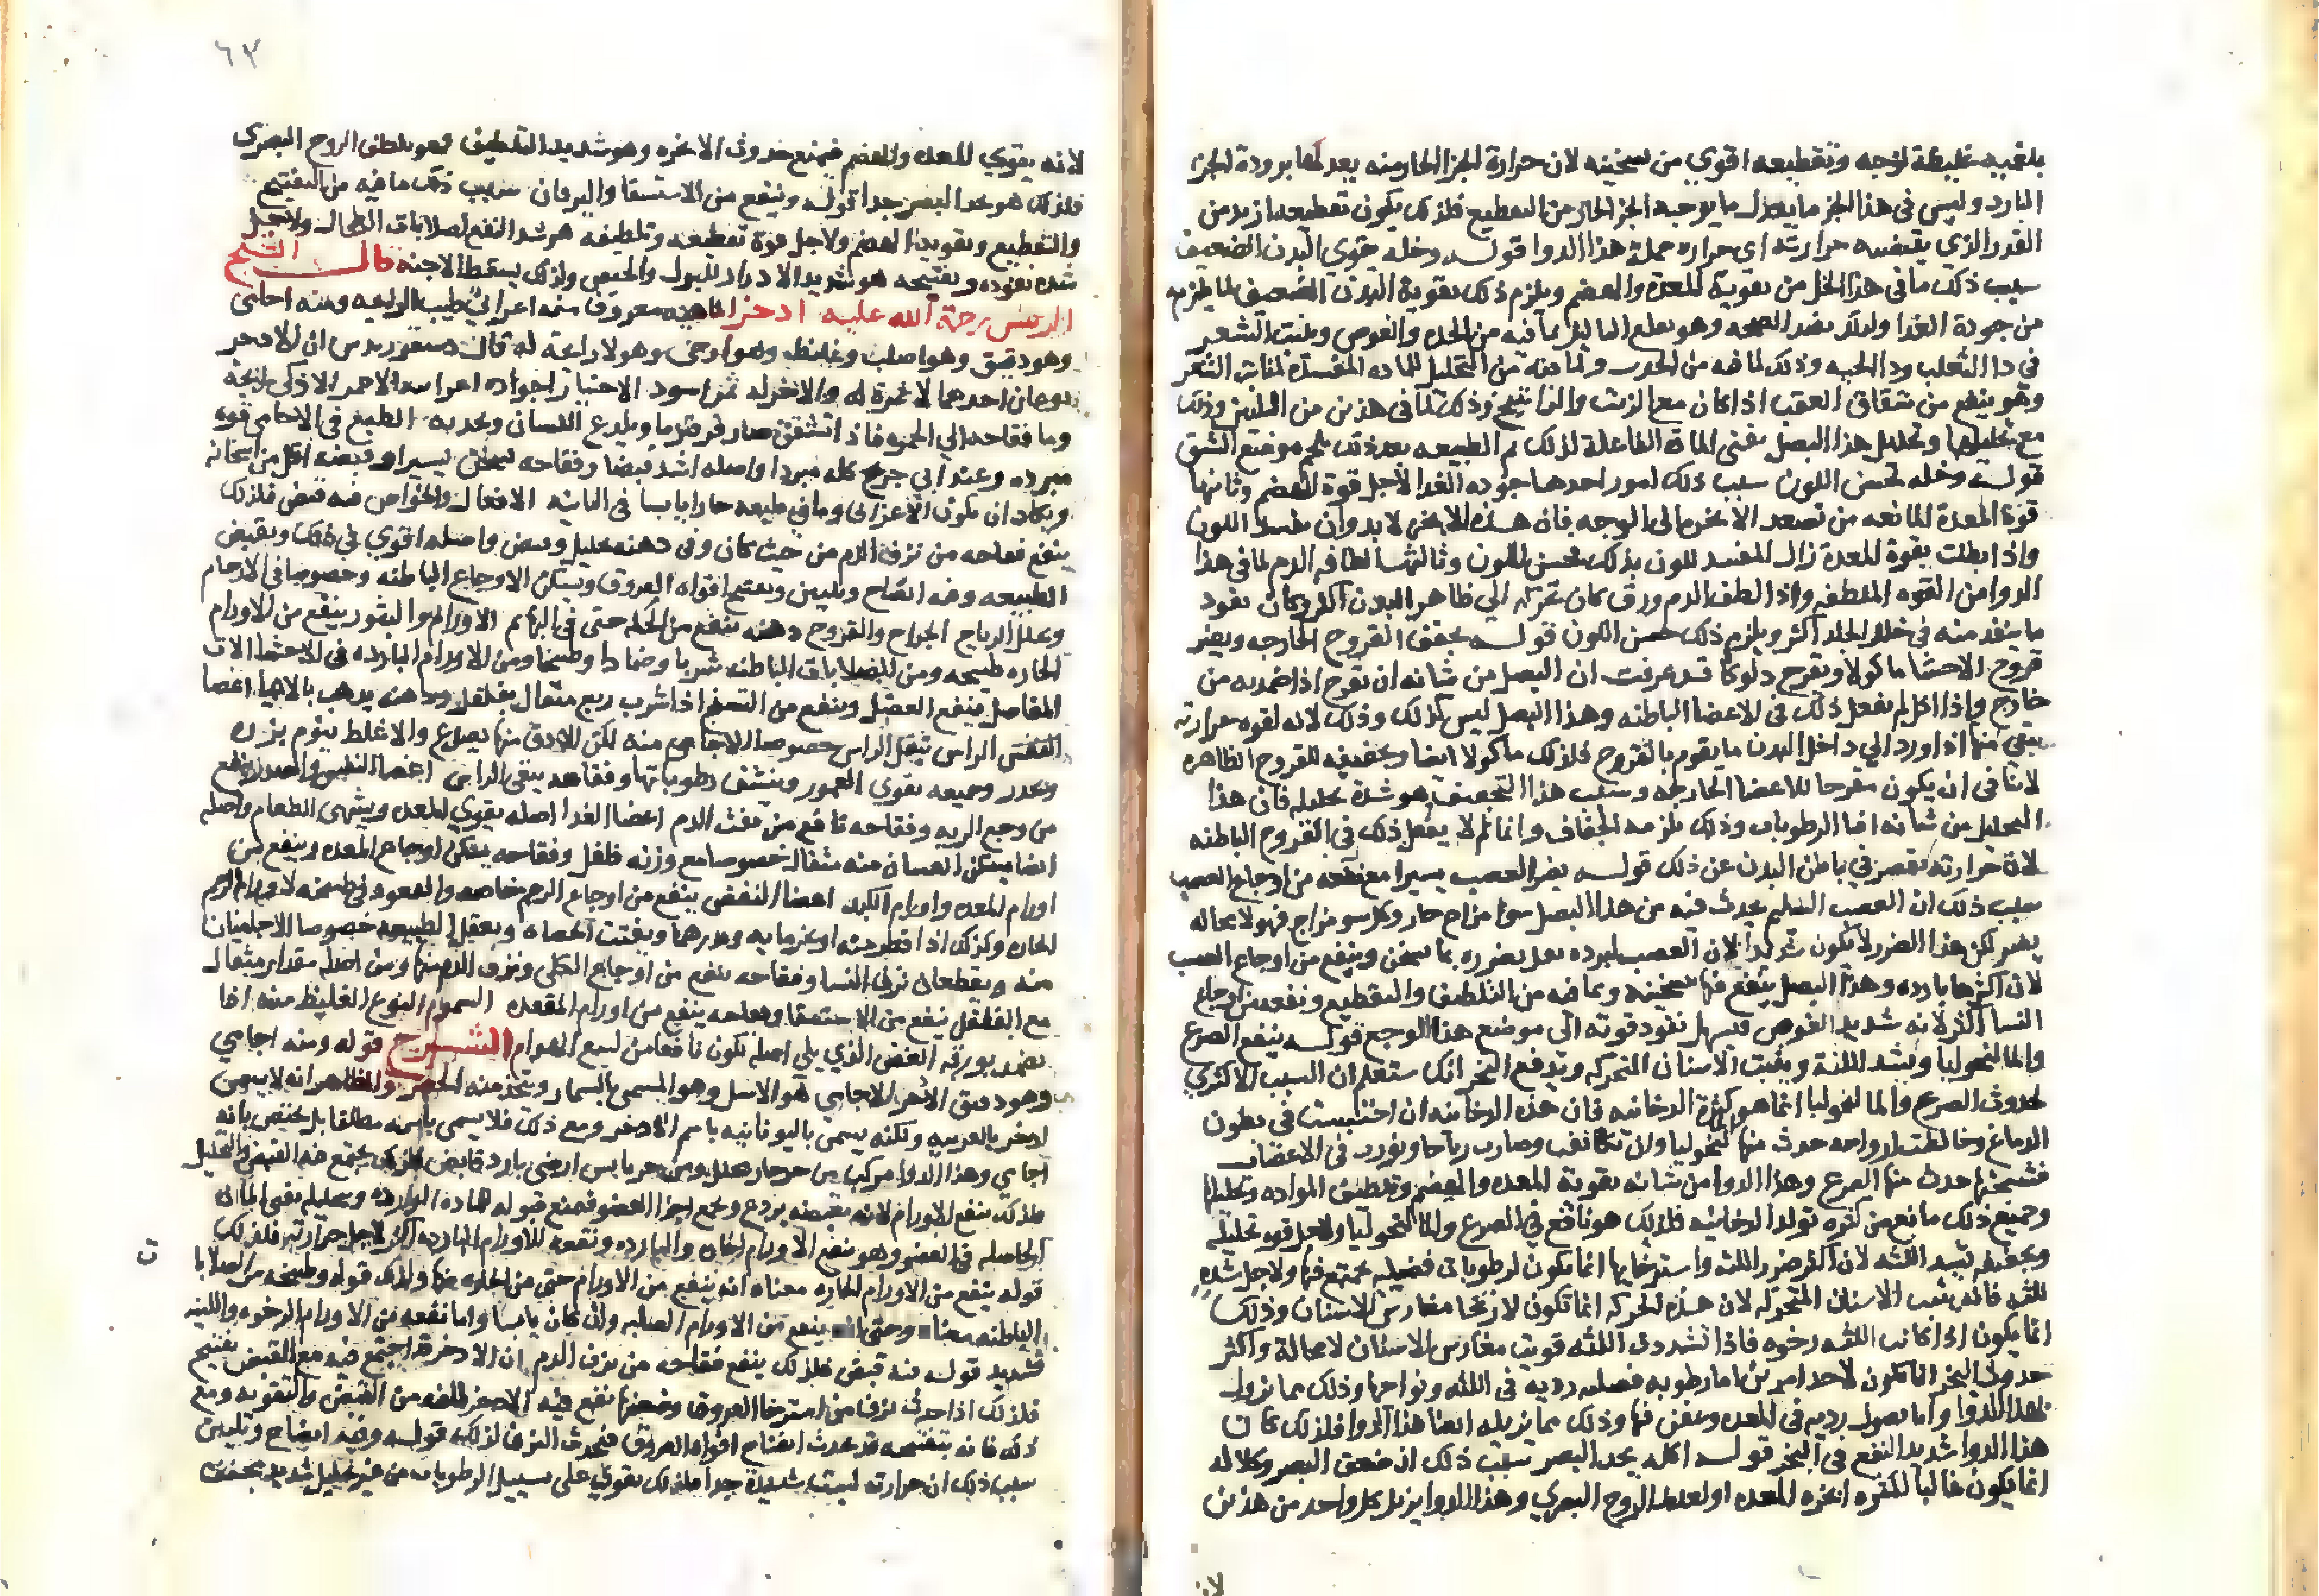 بلغميه غليظة لزجه وتقطيعه اقوي من تسخينه لان حرارة الجزا الحار منه يعدلها برودة الجزا
البارد وليس في هذا الجز ما يعدل ما يوجبه الجز الحار من التقطيع فلذلك يكون تقطيعه ازيد من
القدر الذي يقتضيه حرارته اي حراره جملة هذا الدوا قوله وخله يقوي البدن الضعيف
سبب ذلك ما في هذا الخل من تقوية المعدة والهضم ويلزم ذلك تقوية البدن الضعيف لما يلزمه
من جودة الغدا ولذلك يفيد الصحه وهو يقلع الثاليل بما فيه من الحده والغوص وينبت الشعر
في دا الثعلب ودا الحيه وذلك لما فيه من الحدة ولما فيه من التحليل للماده المفسدة لمنابت الشعر
وهو ينفع من شقاق العقب اذا كان مع الزيت والراتينج وذلك لما في هذين من التليين وذلك
مع تحليلها وتحليل هذا البصل يفني المادة الفاعلة لذلك ثم الطبيعه بعد ذلك تلحم موضع الشق
قوله وخله يحسن اللون سبب ذلك امور احدها جوده الغدا لاجل قوة الهضم وثانيها
قوة المعدة المانعه من تصعد الابخره الي الوجه فان هذه الابخره لا بد وان تفسد اللون
واذا بطلت بقوة المعدة زال المفسد للون بذلك يحسن اللون وثالثها لطافه الدم لما في هذا
الدوا من القوه الملطفه واذا لطف الدم ورق كان تحركه الي ظاهر البدن اكثر وكان نفود
ما ينفد منه في خلل الجلد اكثر ويلزم ذلك حسن اللون قوله يجفف القروح الخارجه ويضر
قروح الاحشا ماكولا ويقرح دلوكا قد عرفت ان البصل من شانه ان يقرح اذا ضمد به من
خارج واذا اكل لم يفعل ذلك في الاعضا الباطنه وهذا البصل ليس كذلك وذلك لانه لقوه حرارته
يبقي منها اذا ورد الي داخل البدن ما يقوم بالقروح فلذلك ماكولا ايضا وتجفيفه للقروح الظاهره
لا ينافي ان يكون مقرحا للاعضا الخارجه وسبب هذا التجفيف هو شدة تحليله فان هذا
التحليل من شانه افنا الرطوبات وذلك يلزمه الجفاف وانما لم لا يفعل ذلك في القروح الباطنه
لان حرارته تقصر في باطن البدن عن ذلك قوله يضر العصب يسيرا مع نفعه من اوجاع العصب
سبب ذلك ان العصب السليم يحدث فيه من هذا البصل سوا مزاج حار وكل سو مزاج فهو لا محاله
يضر لكن هذا الضرر لا يكون شديدا لان العصب لبرده يعدل ضرره بما يسخن وينفع من اوجاع العصب
لان اكثرها بارده وهذا البصل ينفع فيها بتسخينه وبما فيه من التلطيف والتقطيع ونفعه من اوجاع
النسا اكثر لانه شديد الغوص فيسهل نفود قوته الي موضع هذا الوجع قوله ينفع الصرع
والمالنخوليا ويشد اللثة ويثبت الاسنان المتحركه ويدفع البخر انك ستعلم ان السبب الاكثري
لحدوث الصرع والمالنخوليا انما هو كثرة الدخانيه فان هذه الدخانيه ان احتبست في بطون
الدماغ وخالطت ارواحه حدث منها المالنخوليا وان تكاثفت وصارت رياحا ونفدت في الاعصاب
فشنجتها حدث منها الصرع وهذا الدوا من شانه تقوية المعده والهضم وتلطيف المواد وتحليلها
وجميع ذلك مانع من كثره تولد الدخانيه فلذلك هو نافع في الصرع والمالنخوليا ولاجل قوه تحليله
وتجفيفه يشد اللثه لان اكثر ضرر اللثه واسترخايها انما يكون لرطوبات فضليه تجتمع فيها ولاجل شده
اللثه فانه يثبت الاسنان المتحركه لان هذه الحركه انما تكون لارتخا مغارس الاسنان وذلك
انما يكون اذا كانت اللثه رخوه فاذا تشددت اللثه قويت مغارس الاسنان لا محالة واكثر
حدوث البخر انما تكون لاحد امرين اما رطوبه فضليه رديه في اللثه ونواحيها وذلك مما يزول
بهذا الدوا واما فضول رديه في المعده وتعفن فيها وذلك مما يزيله ايضا هذا الدوا فلذلك كان
هذا الدوا شديد النفع في البخر قوله اكله يحد البصر سبب ذلك ان ضعف البصر وكلاله
انما يكون غالبا لكثره ابخره المعده او لغلظ الروح البصري وهذا الدوا يزيل كل واحد من هذين
لان
٦٣
لانه يقوي المعده والهضم فيمنع حدوث الابخره وهو شديد التلطيف فهو يلطف الروح البصري
فلذلك هو يحد البصر جدا قوله وينفع من الاستسقا واليرقان سبب ذلك ما فيه من التفتيح
والتقطيع وتقويه الهضم ولاجل قوة تقطيعه وتلطيفه هو شديد النفع لصلابات الطحال ولاجل
شده نفوده وتفتيحه هو شديد الادرار للبول والحيض ولذلك يسقط الاجنه قال الشيخ
الرييس رحمة الله عليه اذخر الماهيه معروف منه اعرابي طيب الرايحه ومنه اجامي
وهو دقيق وهو اصلب وغليظ وهو ارخي وهو لا رايحة له قال ديسقوريدس ان الاذخر
نوعان احدهما لا ثمرة له والاخر له ثمر اسود الاختيار اجوده اعرابيه الاحمر الاذكي رايحة
وما فقاحه الي الحمره فاذا تشقق صار فرفيريا ويلدع اللسان ويحد به الطبع في الاجامي قوه
مبرده وعند ابن جريج كله مبرد واصله اشد قبضا وفقاحه يسخن يسيرا وقبضه اقل من اسخانه
ويكاد ان يكون الاعرابي وما في طبعه حارا يابسا في الثانيه الافعال والخواص فيه قبض فلذلك
ينفع فقاحه من نزف الدم من حيث كان وفي دهنه تحليل وقبض واصله اقوي في ذلك ويقبض
الطبيعه وفيه انضاج وتليين ويفتح افواه العروق ويسكن الاوجاع الباطنه وخصوصا في الارحام
ويحلل الرياح الجراح والقروح دهنه ينفع من الحكه حتي في البهايم الاورام والبثور ينفع من الاورام
الحاره طبيخه ومن الصلابات الباطنه شربا وضمادا وطبيخا ومن الاورام البارده في الاحشا الات
المفاصل ينفع العضل وينفع من التشنج اذا شرب ربع مثقال بفلفل ودهنه يذهب بالاعيا اعضا
الراس يثقل الراس خصوصا الاجامي منه لكن الادق منها يصدع والاغلظ ينوم بزره
ويخدر وجميعه يقوي العمور وينشف رطوباتها وفقاحه ينقي الراس اعضا النفس والصدر ينفع
من وجع الريه وفقاحه نافع من نفث الدم اعضا الغدا اصله يقوي المعده ويشهي الطعام واصله
ايضا يسكن الغثيان منه مثقال خصوصا مع وزنه فلفل وفقاحه يسكن اوجاع المعده وينفع من
اورام المعده واورام الكبد اعضا النفض ينفع من اوجاع الرحم خاصه والقعود في طبيخه لاورام الرحم
الحاره وكذلك اذا قطر فيه او تحزما به ويدرهما ويفتت الحصاه ويعقل الطبيعه خصوصا الاجاميان
منه ويقطعان نزف النسا وفقاحه ينفع من اوجاع الكلي ونزف الدم منها ومن اصله مقدار مثقال
مع الفلفل ينفع من الاستسقا وفقاحه ينفع من اورام المقعده السموم النوع الغليظ منه اذا
تضمد بورقه الغض الذي يلي اصله تكون نافعا من لسع الهوام الشرح قوله ومنه اجامي
وهو دقيق الاذخر الاجامي هو الاسل وهو المسمي بالسمار ويتخذ منه الحصر والظاهر انه لا يسمي
اذخر بالعربيه ولكنه يسمي باليونانيه باسم الاذخر ومع ذلك فلا يسمي باسمه مطلقا بل يختص بانه
اجامي وهذا الدوا مركب من جوهر حار محلل ومن جوهر يابس ارضي بارد قابض فلذلك يجتمع فيه القبض والتحليل
فلذلك ينفع الاورام لانه بقبضه يردع ويجمع اجزا العضو فيمنع قبوله للماده الوارده وبتحليله يفني الماده
الحاصله في العضو وهو ينفع الاورام الحاره والبارده ونفعه للاورام البارده اكثر لاجل حرارته فلذلك
قوله ينفع من الاورام الحاره معناه انه ينفع من الاورام حتي من الحاره منها ولذلك قوله وطبيخه من الصلابات
الباطنه معناه وحتي انه ينفع من الاورام الصلبه وان كان يابسا واما نفعه من الاورام الرخوه واللينه
فشديد قوله فيه قبض فلذلك ينفع فقاحه من نزف الدم ان الاذخر قد اجتمع فيه مع القبض تفتيح
فلذلك اذا حدث نزف من استرخا العروق وضعفها نفع فيه الاذخر لما فيه من القبض والتقويه ومع
ذلك فانه بتفتيحه قد يحدث انفتاح افواه العروق فيحدث النزف لذلك قوله وفيه انضاج وتليين
سبب ذلك ان حرارته ليست شديدة جدا فلذلك يقوي علي تسييل الرطوبات من غير تحليل شديد مجفف